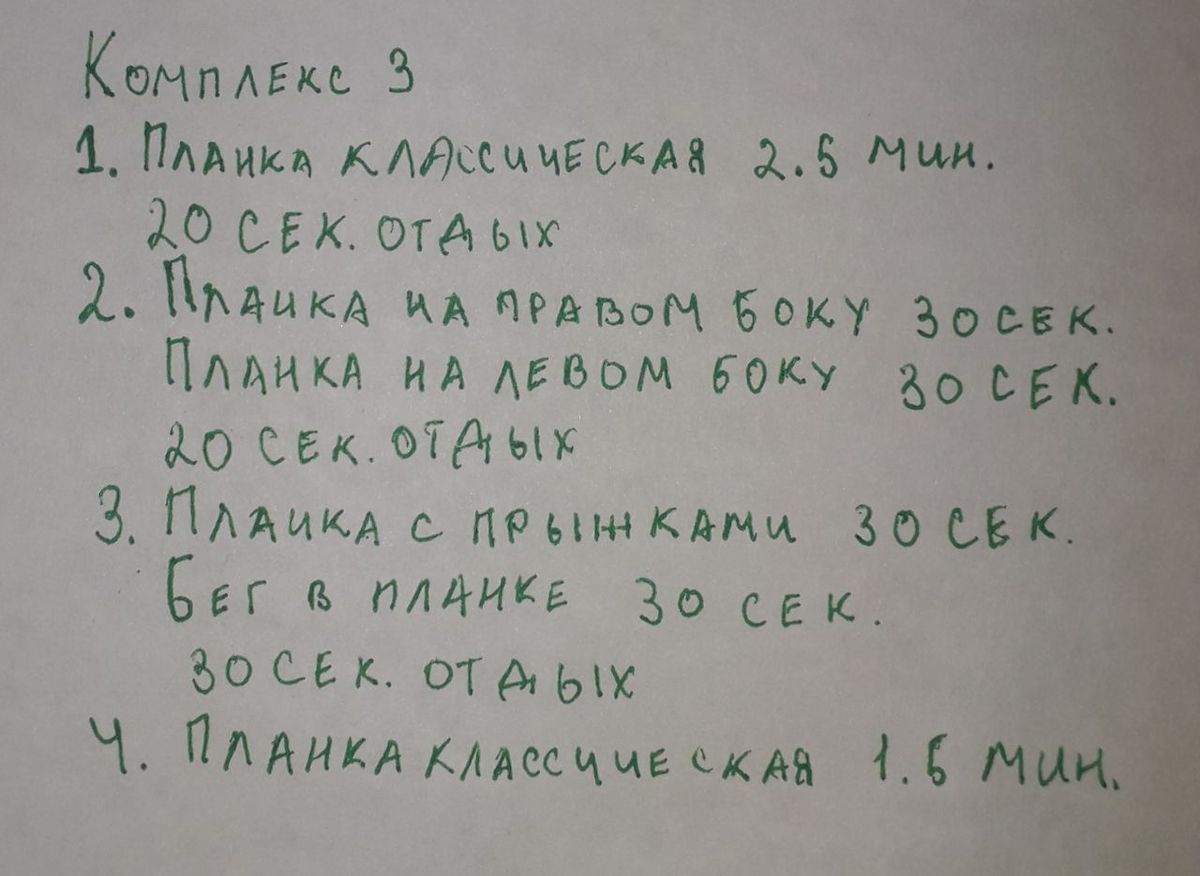 Комплекс 3
1. Планка классическая 2.5 мин.
20 сек. отдых
2. Планка на правом боку 30 сек.
Планка на левом боку 30 сек.
20 сек. отдых
3. Планка с прыжками 30 сек.
Бег в планке 30 сек.
30 сек. отдых
4. Планка классическая 1.5 мин.